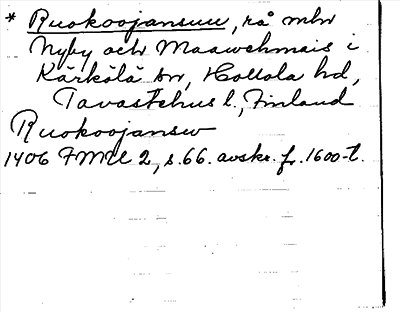 * Ruokoojansuu, rå mhr
Nyby och Maawehmais i
Kärkölä sn, Hollola hd,
Tavastehus l., Finland
Ruokoojansw
1406 FMU 2, s. 66. avskr. fr. 1600-t.